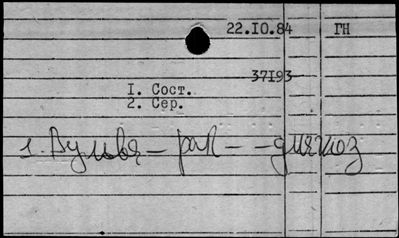 22.IO.84 ГН
37I93
I. Сост.
2. Сер.
1. Вульва – рак – – диагноз